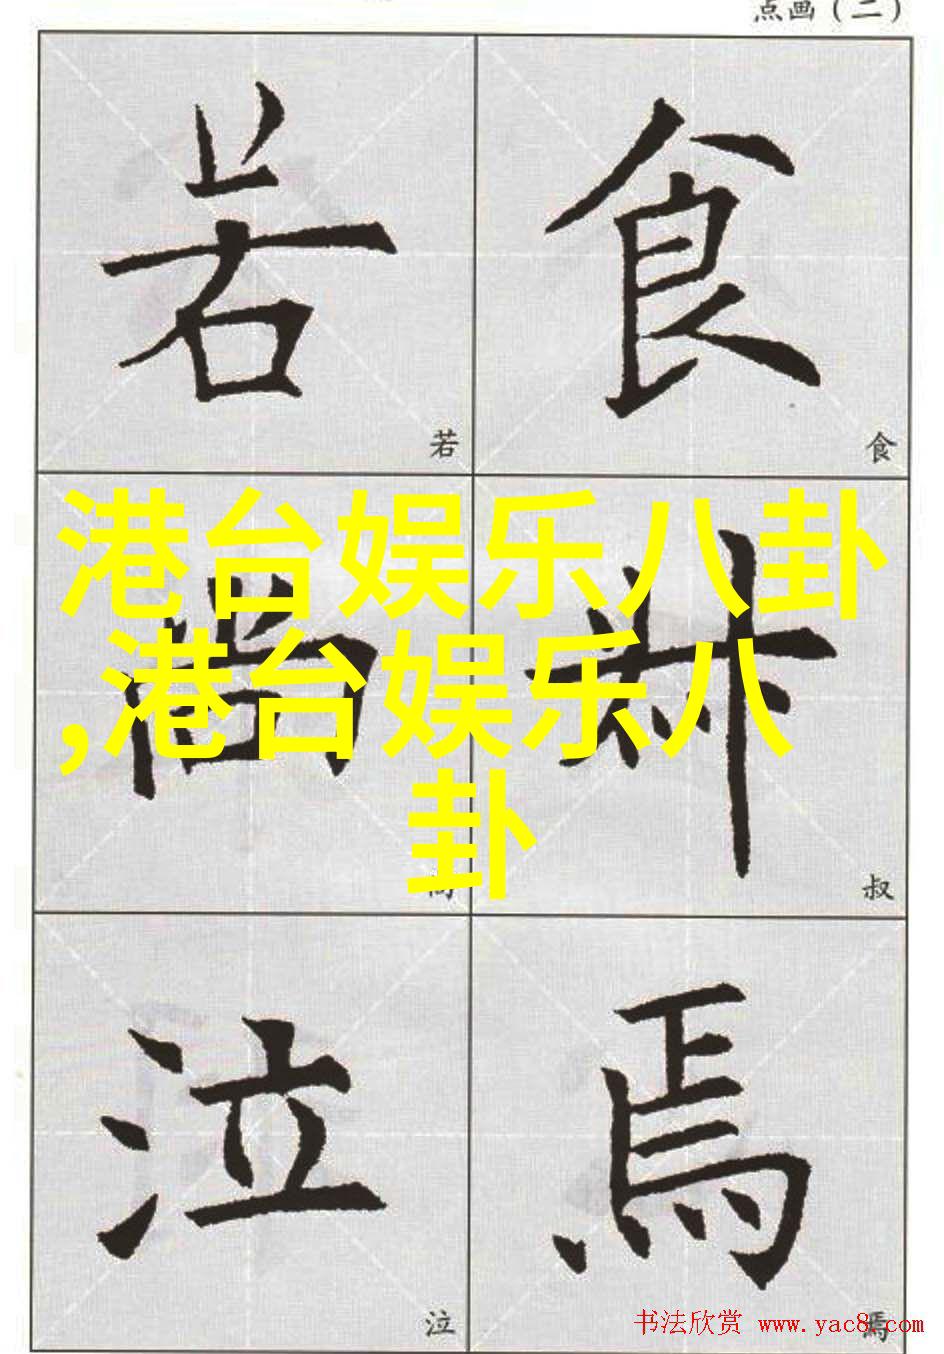 点画（二）
若 食
若 食
港台娱乐八卦
,港台娱乐八
卦
尚 叔
尚 叔
泣 焉
泣 焉
书法欣赏 www.yac8.com